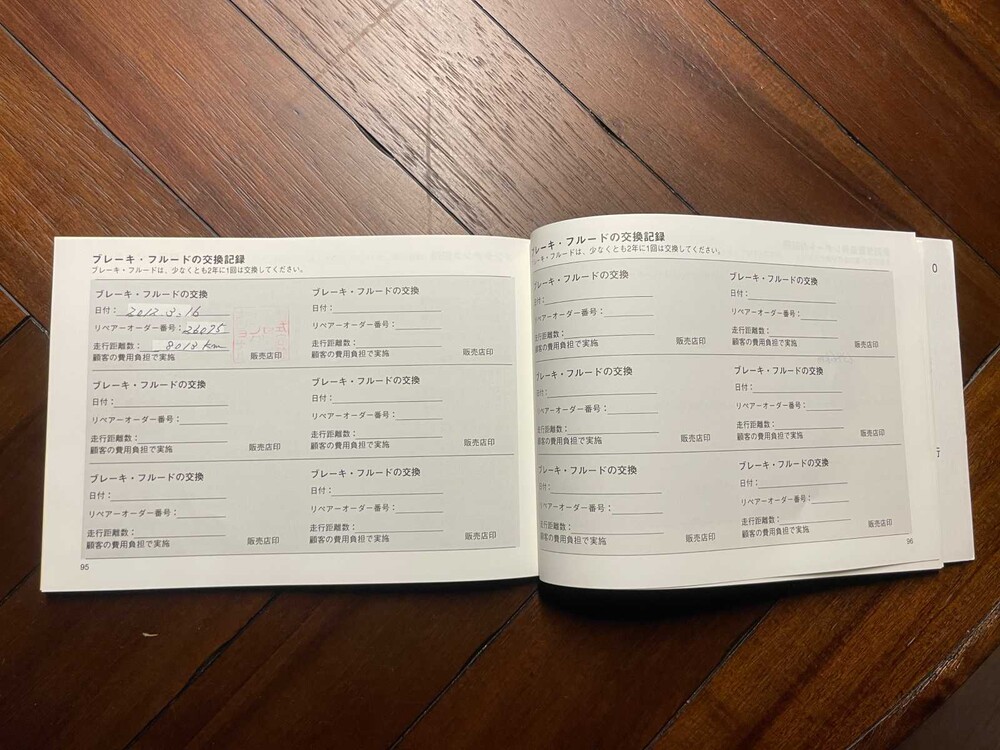 ブレーキ・フルードの交換記録
ブレーキ・フルードは、少なくとも2年に1回は交換してください。
ブレーキ・フルードの交換
日付：2012.3.16
リペアーオーダー番号：26075
走行距離数： 8013 km
顧客の費用負担で実施 販売店印
ブレーキ・フルードの交換
日付：
リペアーオーダー番号：
走行距離数：
顧客の費用負担で実施 販売店印
ブレーキ・フルードの交換
日付：
リペアーオーダー番号：
走行距離数：
顧客の費用負担で実施 販売店印
ブレーキ・フルードの交換
日付：
リペアーオーダー番号：
走行距離数：
顧客の費用負担で実施 販売店印
ブレーキ・フルードの交換
日付：
リペアーオーダー番号：
走行距離数：
顧客の費用負担で実施 販売店印
ブレーキ・フルードの交換
日付：
リペアーオーダー番号：
走行距離数：
顧客の費用負担で実施 販売店印
95
ブレーキ・フルードの交換記録
ブレーキ・フルードは、少なくとも2年に1回は交換してください。
ブレーキ・フルードの交換
日付：
リペアーオーダー番号：
走行距離数：
顧客の費用負担で実施 販売店印
ブレーキ・フルードの交換
日付：
リペアーオーダー番号：
走行距離数：
顧客の費用負担で実施 販売店印
ブレーキ・フルードの交換
日付：
リペアーオーダー番号：
走行距離数：
顧客の費用負担で実施 販売店印
ブレーキ・フルードの交換
日付：
リペアーオーダー番号：
走行距離数：
顧客の費用負担で実施 販売店印
ブレーキ・フルードの交換
日付：
リペアーオーダー番号：
走行距離数：
顧客の費用負担で実施 販売店印
ブレーキ・フルードの交換
日付：
リペアーオーダー番号：
走行距離数：
顧客の費用負担で実施 販売店印
96